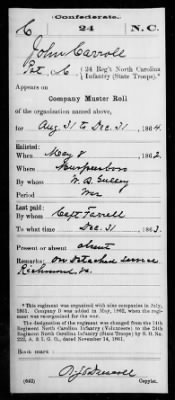 Confederate.
C 24 N.C.
John Carroll
Pvt, Co. C, 24 Reg't North Carolina
Infantry (State Troops).*
Appears on
Company Muster Roll
of the organization named above,
for Aug 31 to Dec. 31, 1864.
Enlisted:
When May 8, 1862.
Where Murfreesboro
By whom W. B. Gulley
Period War
Last paid:
By whom Capt Farrell
To what time Dec. 31, 1863.
Present or absent absent
Remarks: on detached service
Richmond, Va.
*This regiment was organized with nine companies in July,
1861. Company D was added in May, 1862, when the regi-
ment was reorganized for the war.
The designation of the regiment was changed from the 14th
Regiment North Carolina Infantry (Volunteers) to the 24th
Regiment North Carolina Infantry (State Troops) by S. O. No.
222, A. & I. G. O., dated November 14, 1861.
Book mark:
(642)
Copyist.